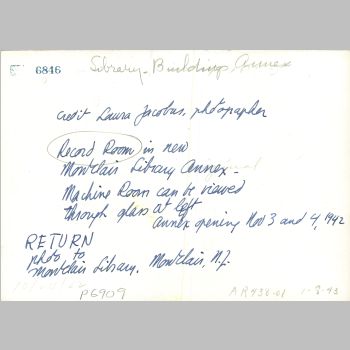 5 6846 Library-Buildings, Annex
Credit Laura Jacobus, photographer
Record Room in new
Montclair Library Annex.
Machine Room can be viewed
through glass at left
Annex opening Nov 3 and 4, 1942
RETURN
photo to
Montclair Library, Montclair, N.J.
P6909 AR438-01 1-3-43